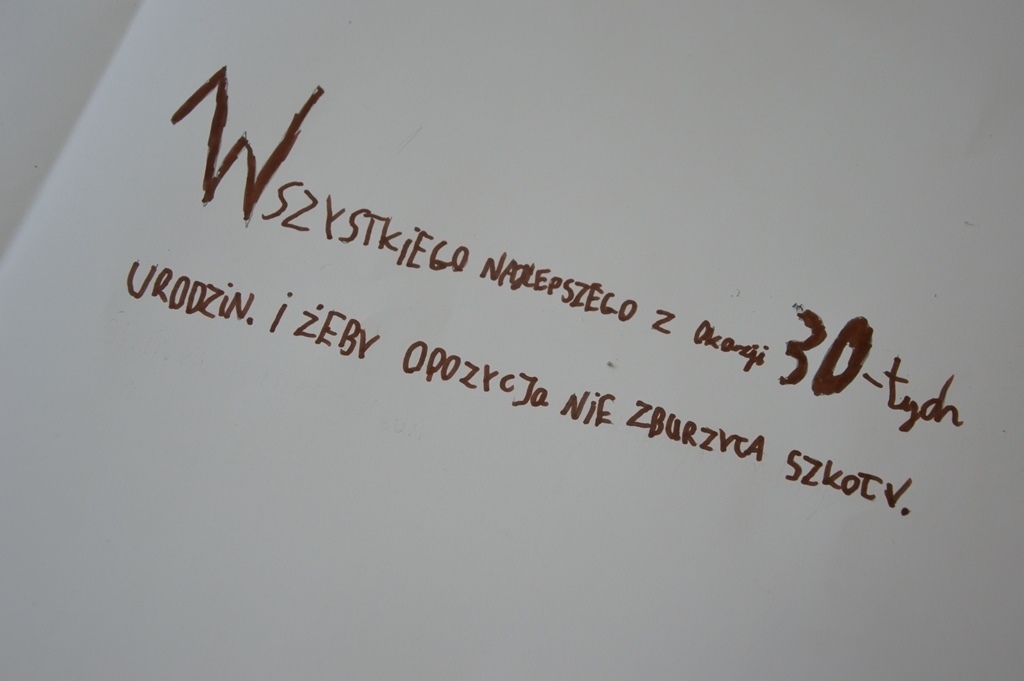 WSZYSTKiEGO NAJLEPSZEGO Z Okazji 30-tych
URODZiN. i ŻEBY OPOZYCJa NiE ZBURZYŁA SZKOŁY.